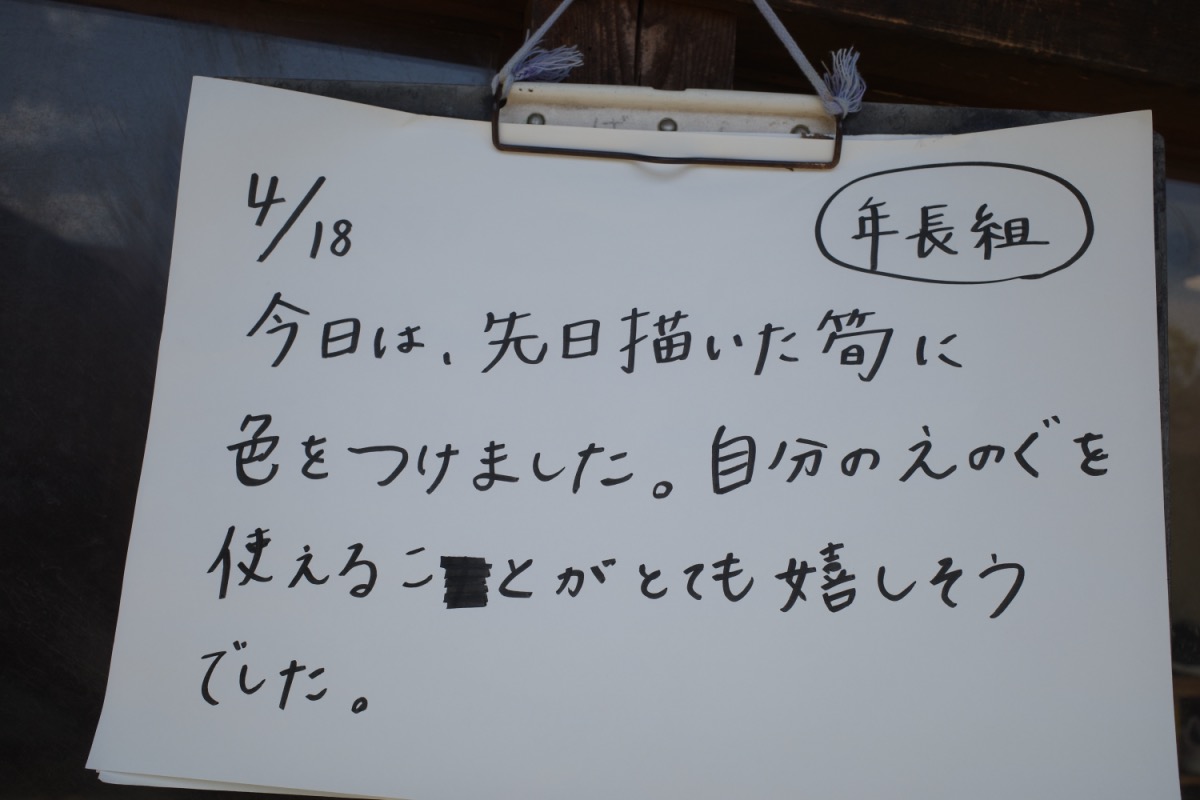 4/18
年長組
今日は、先日描いた筍に
色をつけました。自分のえのぐを
使えることがとても嬉しそう
でした。